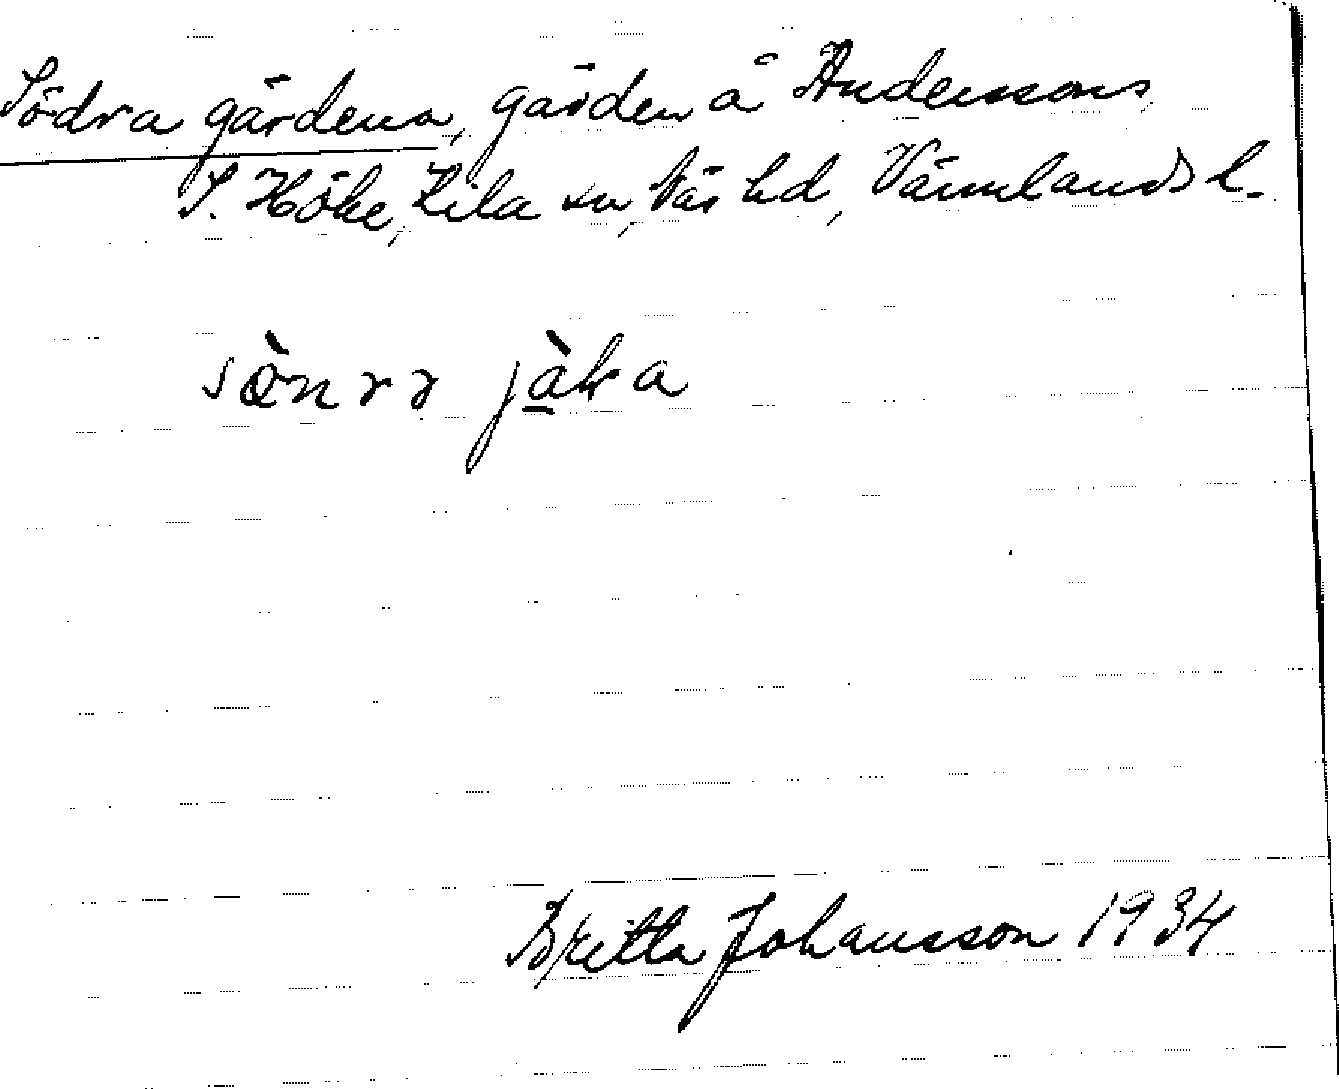 Södra gärdena, gärden å Anderssons,
S. Höke, Kila sn, Näs hd, Värmlands l.
sònrr jàka
Britta Johansson 1934